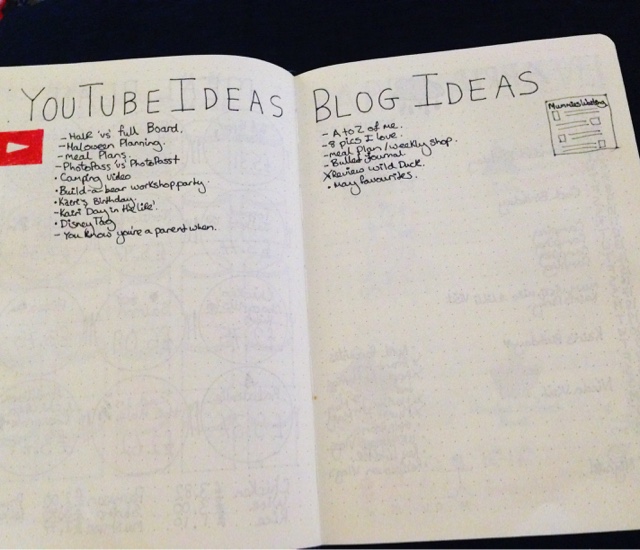 YOUTUBE IDEAS
- Half 'vs' full Board.
- Haloween Planning.
- meal Plans.
- PhotoPass 'vs' PhotoPass+
• Camping video
• Build-a-bear workshop party.
• Kaeri's Birthday.
- Kaeri Day in the life'.
• Disney Tag
- You know you're a parent when.
BLOG IDEAS
- A to Z of me.
- 8 pics I love.
- meal Plan / weekly shop.
- Bullet Journal
X Review Wild Duck.
• May favourites.